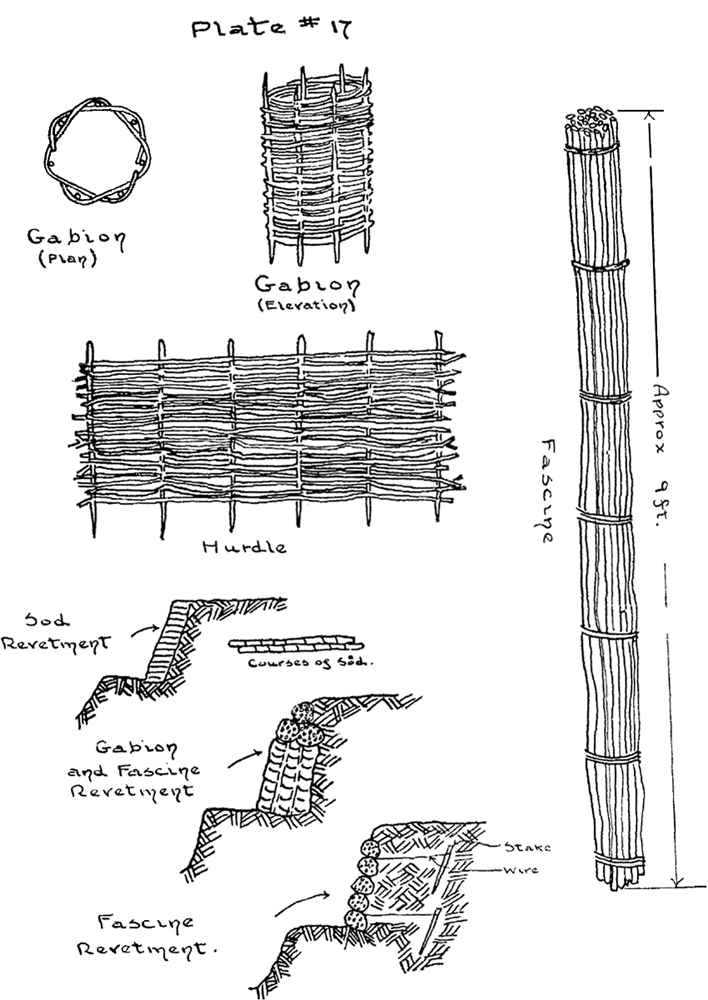 Plate # 17
Gabion
(Plan)
Gabion
(Elevation)
Approx 9 ft.
Fascine
Hurdle
Sod
Revetment
Courses of Sod.
Gabion
and Fascine
Revetment
Stake
Wire
Fascine
Revetment.